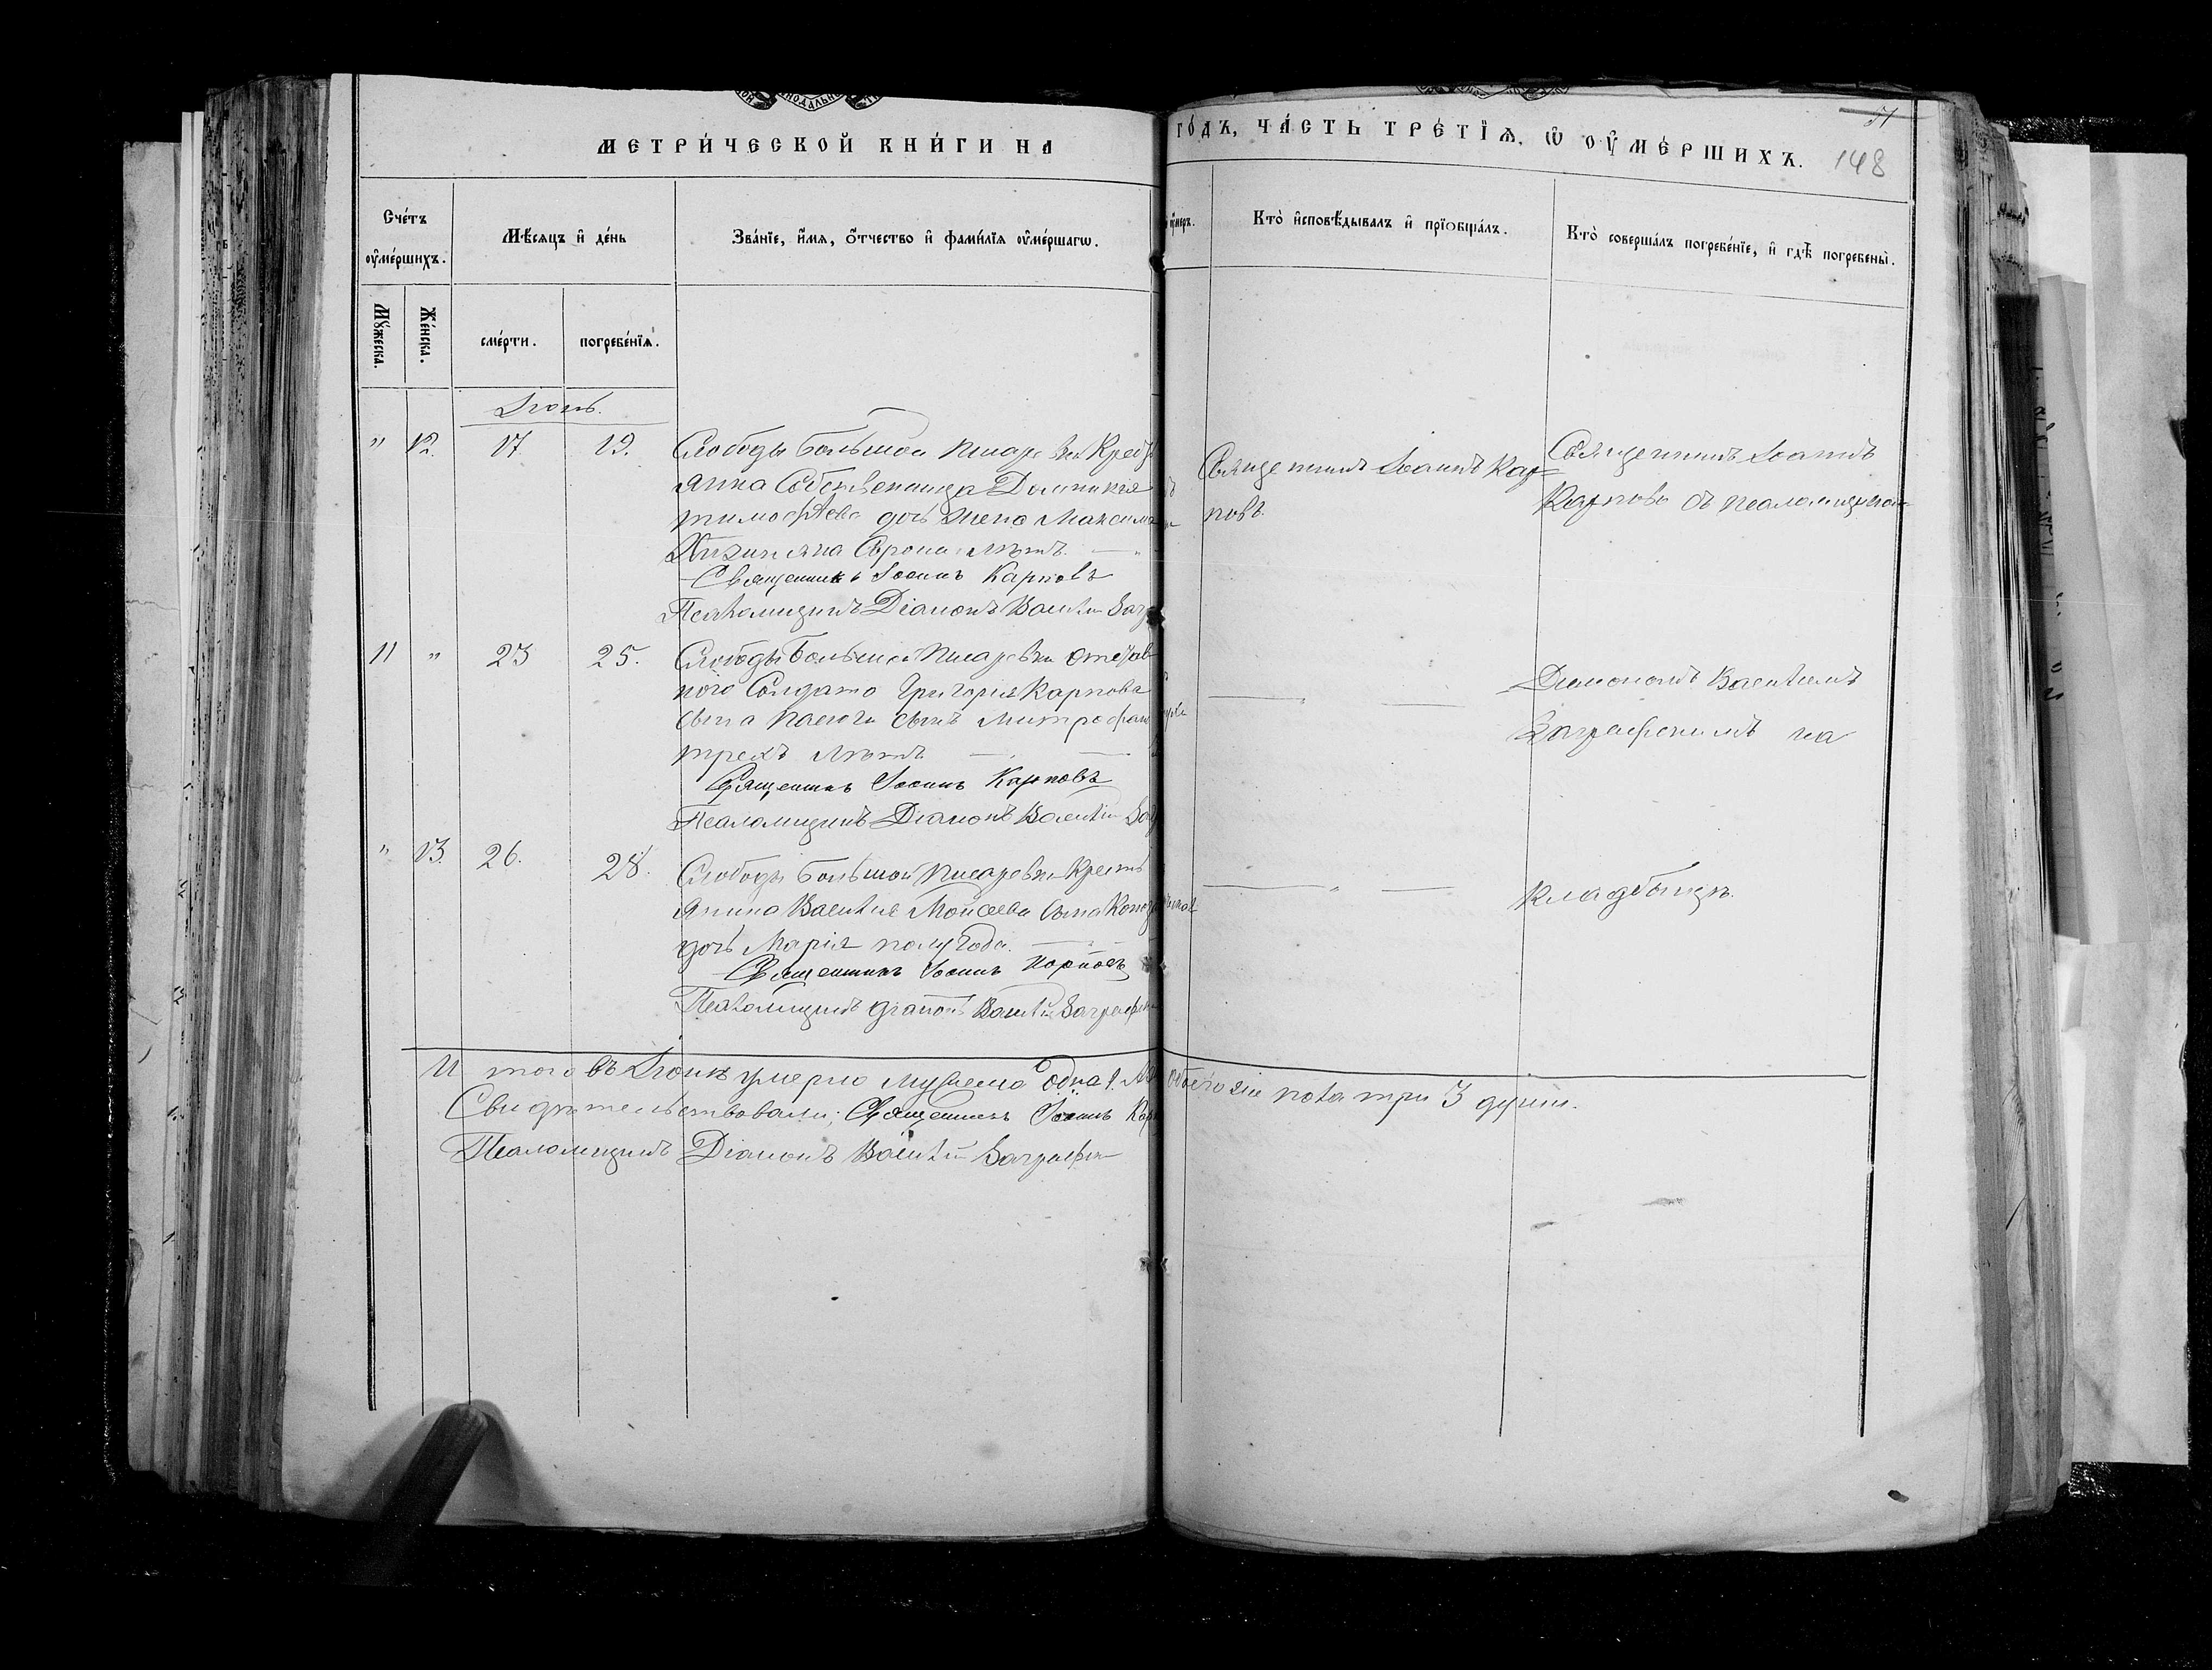 МЕТРИ́ЧЕСКОЙ КНИ́ГИ НА
ГО́ДЪ, ЧА́СТЬ ТРЕ́ТЇѦ, Ѡ҆ ОУ҆МЕ́РШИХЪ.
51
148
Сче́тъ оу҆ме́ршихъ.
Мѣ́сѧцъ и҆ де́нь
Зва́нїе, и҆́мѧ, ѻ҆́тчество и҆ фами́лїѧ оу҆ме́ршагѡ.
Кто̀ и҆сповѣ́дывалъ и҆ прїѻбща́лъ.
Кто̀ соверша́лъ погребе́нїе, и҆ гдѣ̀ погребены̀.
Мꙋ́жеска.
Же́нска.
сме́рти.
погребе́нїѧ.
Іюнь.
" 12. 17 19.
Слободы Большой Писаревки Кресть
янка Собственница Домникія
Тимофѣева дочь жена Максима
Сорока лѣтъ. — "
Священникъ Іоаннъ Карповъ
Псаломщикъ Діаконъ Василій Загр
Священникъ Іоаннъ Кар=
повъ.
Священникъ Іоаннъ
Карповъ съ псаломщикомъ
11 " 23 25.
Слободы Большой Писаревки отстав
ного Солдата Григорія Карпова
сына сынъ Митрофанъ
трехъ лѣтъ —
Священникъ Іоаннъ Карповъ
Псаломщикъ Діаконъ Василій Заг
Діакономъ Василіемъ
Заграфскимъ на
" 13. 26. 28.
Слободы Большой Писаревки Кресть
янина Василія Моисеева сына
дочь Марія полугода. —
Священникъ Іоаннъ Карповъ
Псаломщикъ Діаконъ Василій Заграфск
— " —
кладбищѣ.
И того въ Іюнѣ умерло мужеска одна 1. обоего пола три 3 души.
Свидѣтельствовали; Священникъ Іоаннъ Кар
Псаломщикъ Діаконъ Василій Заграфск